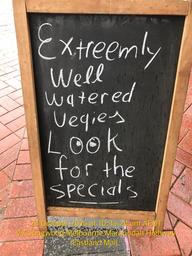 Extreemly
Well
watered
Vegies
Look
for the
specials
Melbourne
Highway
Eastland Mall